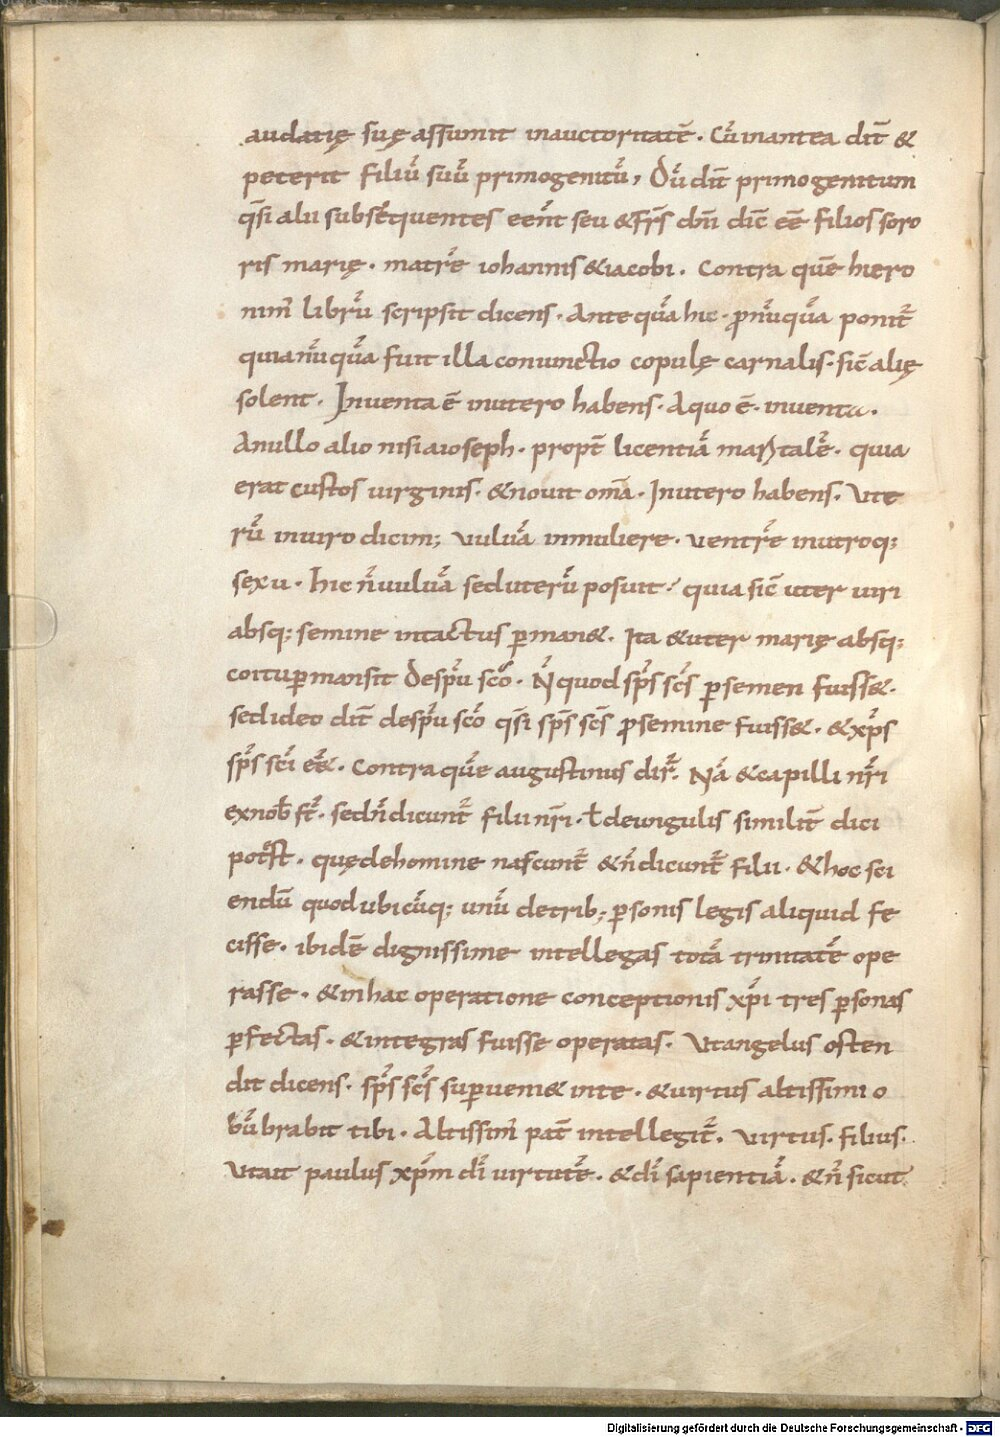 audatię suę assumit inauctoritatē. Cū inantea dit̄ &
peterit filiū suū primogenitū, Dū dit̄ primogenitum
qs̄i alii subsequentes eēnt seu & frs̄ dn̄i dic̄ eē filios soro
ris marię. matrē iohannis & iacobi. Contra quē hiero
nim᾽ librū scripsit dicens. Antequā hic. ꝓnūquā ponit᷑
quia nūquā fuit illa coniunctio copulę carnalis. sic̄ alię
solent. Inventa ē inutero habens. Aquo ē. inventa.
Anullo alio nisi aioseph. propt̄ licentiā maritalē. quia
erat custos uirginis. & nouit om̄a. Inutero habens. Ute
rū inuiro dicim; uuluā inmuliere. uentrē inutroq;
sexu. hic n̄ uuluā sed uterū posuit? quia sic̄ uter uiri
absq; semine intactus ꝑman&. Ita & uter marię absq;
coitu ꝑmansit Despū scō. N̄ quod sps̄ scs̄ ꝑ semen fuiss&.
sed ideo dit̄ despū scō qs̄i sps̄ scs̄ ꝓ semine fuiss&. & xp̄s
sps̄ sc̄i e&. Contra quē augustinus dix̄. Nā & capilli nr̄i
exnob̄ st̄. sed n̄ dicunt᷑ filii nr̄i. ł deuigulis similit̄ dici
potēst. quę dehomine nascunt᷑ & n̄ dicunt᷑ filii. & hoc sci
endū quod ubicūq; unū detrib; ꝑsonis legis aliquid fe
cisse. ibidē dignissime intellegas totā trinitatē ope
rasse. & inhac operatione conceptionis xp̄i tres ꝑsonas
ꝑfectas. & integras fuisse operatas. Ut angelus osten
dit dicens. sps̄ scs̄ suꝑueni& inte. & uirtus altissimi o
būbrabit tibi. Altissim᾽ pat̄ intellegit᷑. uirtus. filius.
Ut ait paulus xp̄m dī uirtutē. & dī sapientiā. & n̄ sicut
Digitalisierung gefördert durch die Deutsche Forschungsgemeinschaft - DFG